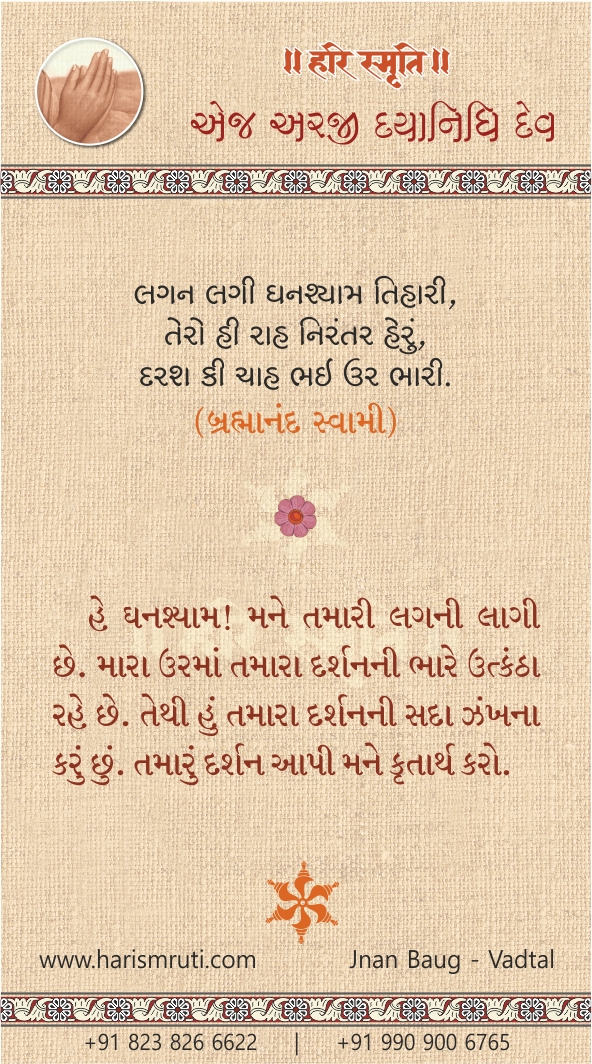 ॥ હરિ સ્મૃતિ ॥
એજ અરજી દયાનિધિ દેવ
લગન લગી ઘનશ્યામ તિહારી,
તેરો હી રાહ નિરંતર હેરું,
દરશ કી ચાહ ભઈ ઉર ભારી.
(બ્રહ્માનંદ સ્વામી)
હે ઘનશ્યામ! મને તમારી લગની લાગી
છે. મારા ઉરમાં તમારા દર્શનની ભારે ઉત્કંઠા
રહે છે. તેથી હું તમારા દર્શનની સદા ઝંખના
કરું છું. તમારું દર્શન આપી મને કૃતાર્થ કરો.
www.harismruti.com Jnan Baug - Vadtal
+91 823 826 6622 | +91 990 900 6765